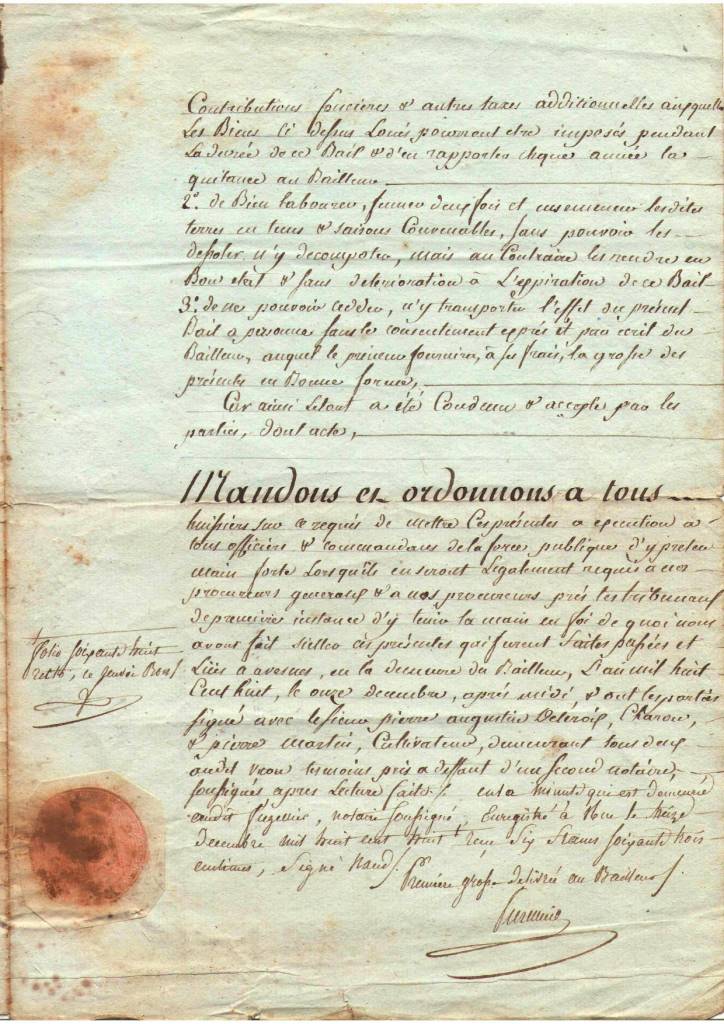 Contributions foncieres & autres taxes additionnelles auxquelle
Les Biens ci dessus Loués pourront etre imposés pendant
La durée de ce Bail & d'en rapporter chque année la
quitance au Bailleur
2°. de Bien labourer, fumer deux fois et ensemencer lesdites
terres en tems & saisons Convenables, sans pouvoir les
dessoler n'y decompoter, mais au Contraire les rendre en
Bon etat & sans deterioration à L'expiration de ce Bail
3°. de ne pouvoir cedder, n'y transporter l'effet du présent
Bail a personne sans le consentement exprès et par ecrit du
Bailleur, auquel le preneur fournira, à ses frais, la grosse des
présentes en Bonne forme,
Car ainsi le tout a été Convenu & accepté par les
parties, dont acte,
Mandons et ordonnons a tous
huissiers sur ce requis de mettre Ces présentes a execution a
tous officiers & commandans de la force publique d'y preter
main forte Lorsqu'ils en seront Legalement requis a nos
procureurs generaux & a nos procureurs près les tribunaux
de première instance d'y tenir la main en foi de quoi nous
avons fait sceller ces présentes qui furent faites passées et
Luës a avesnes, en la demeure du Bailleur, L'an mil huit
Cent huit, le onze decembre, après midi & ont les parties
signé avec le sieur pierre augustin Charon,
& pierre martin, Cultivateur, demeurant tous deux
audit temoins pris a deffaut d'un second notaire,
soussignés apres Lecture faite. en la minute qui est demeurée
audit notaire soussigné, Enregistré à le treize
decembre mil huit cent huit reçu Six francs soixante trois
centimes, Signé
Premiere grosse delivrée au Bailleur.
folio soixante huit
recto, ce